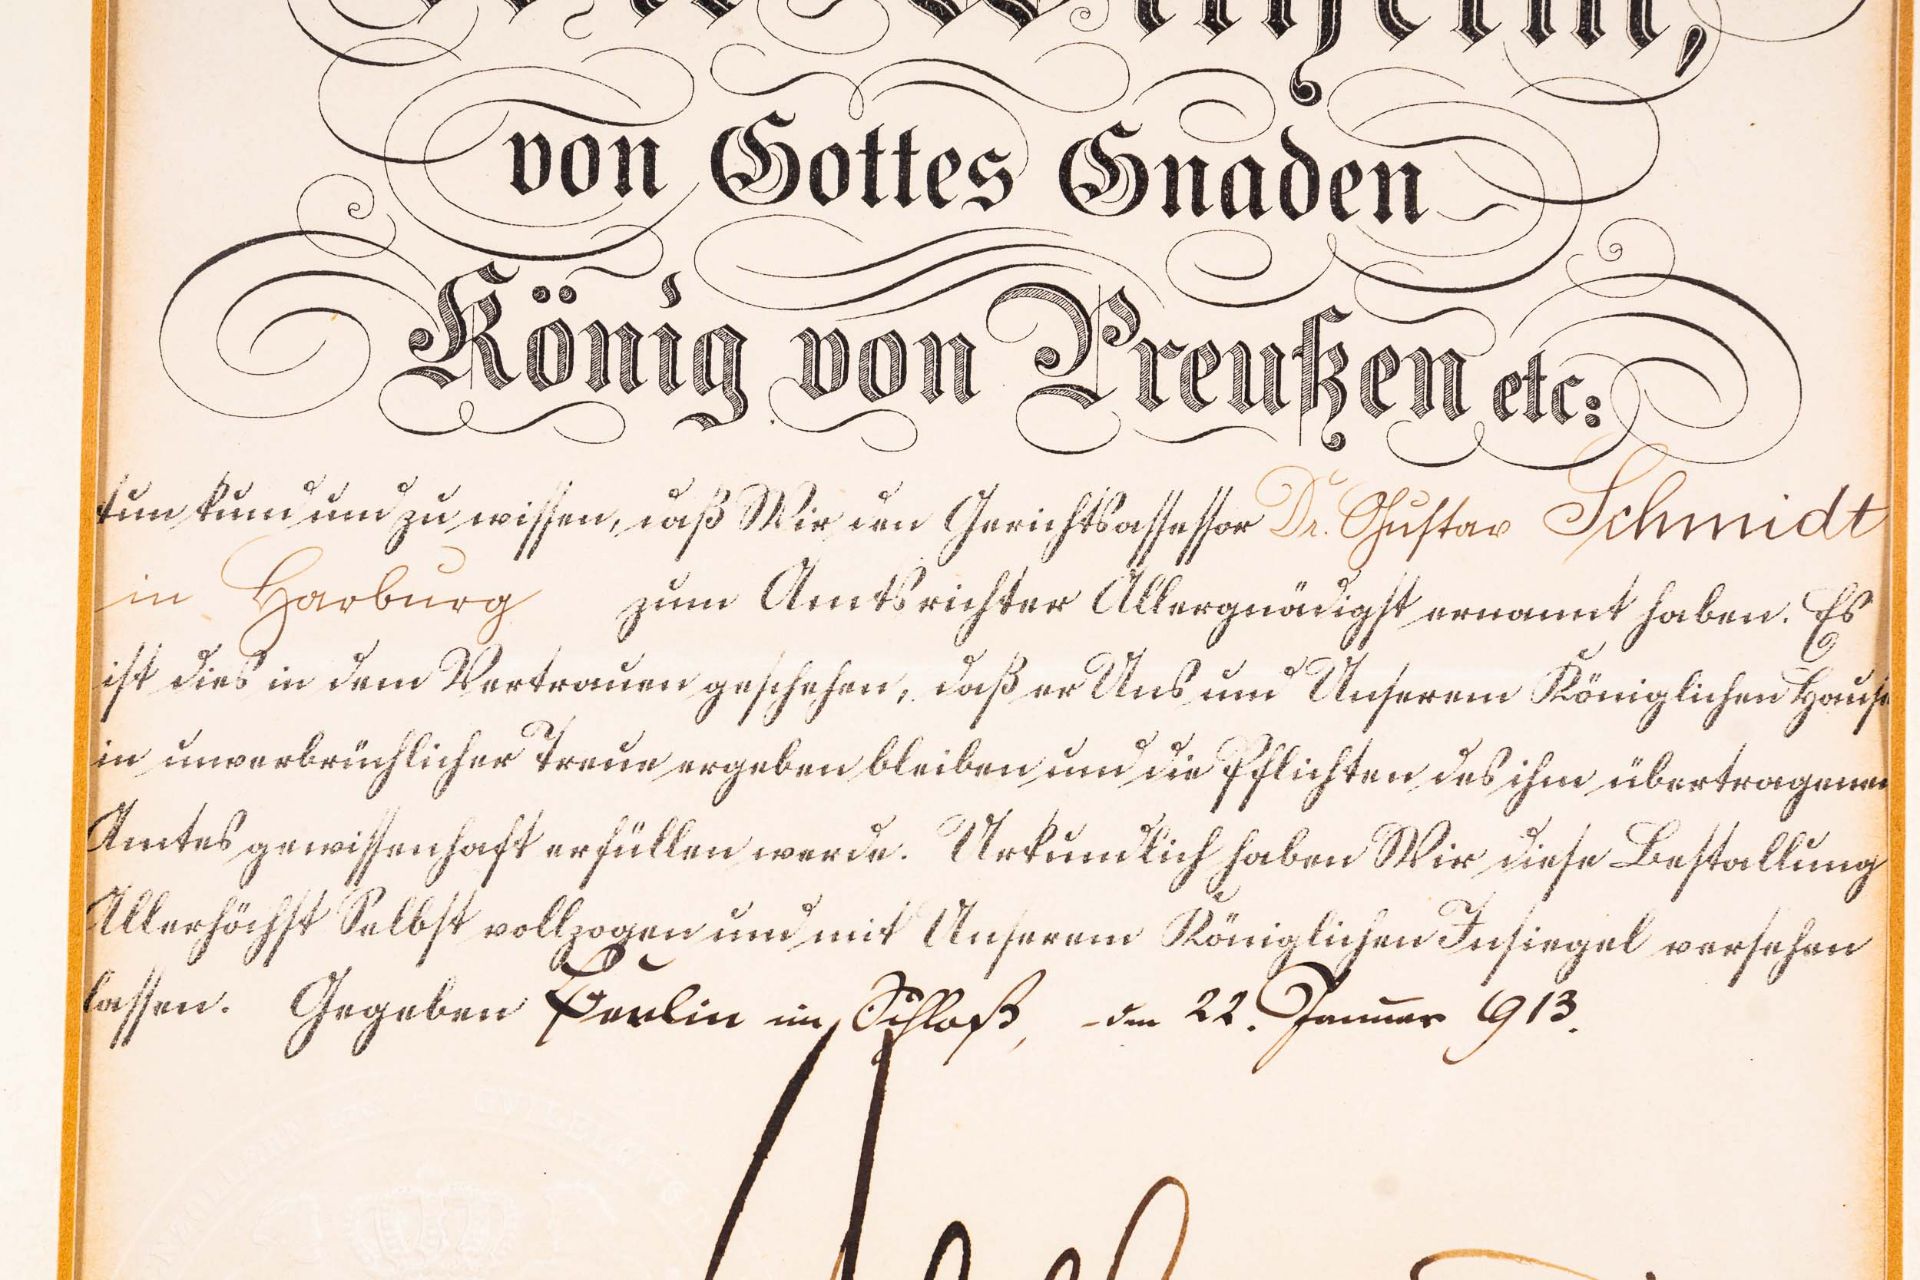 Wilhelm,
von Gottes Gnaden
König von Preußen etc:
tun kund und zu wissen, daß Wir den Gerichtsassessor Dr. Gustav Schmidt
in Harburg zum Amtsrichter Allergnädigst ernannt haben. Es
ist dies in dem Vertrauen geschehen, daß er Uns und Unserem Königlichen Hause
in unverbrüchlicher Treue ergeben bleiben und die Pflichten des ihm übertragenen
Amtes gewissenhaft erfüllen werde. Urkundlich haben Wir diese Bestallung
Allerhöchst Selbst vollzogen und mit Unserem Königlichen Insiegel versehen
lassen. Gegeben Berlin im Schloß, den 22. Januar 1913.